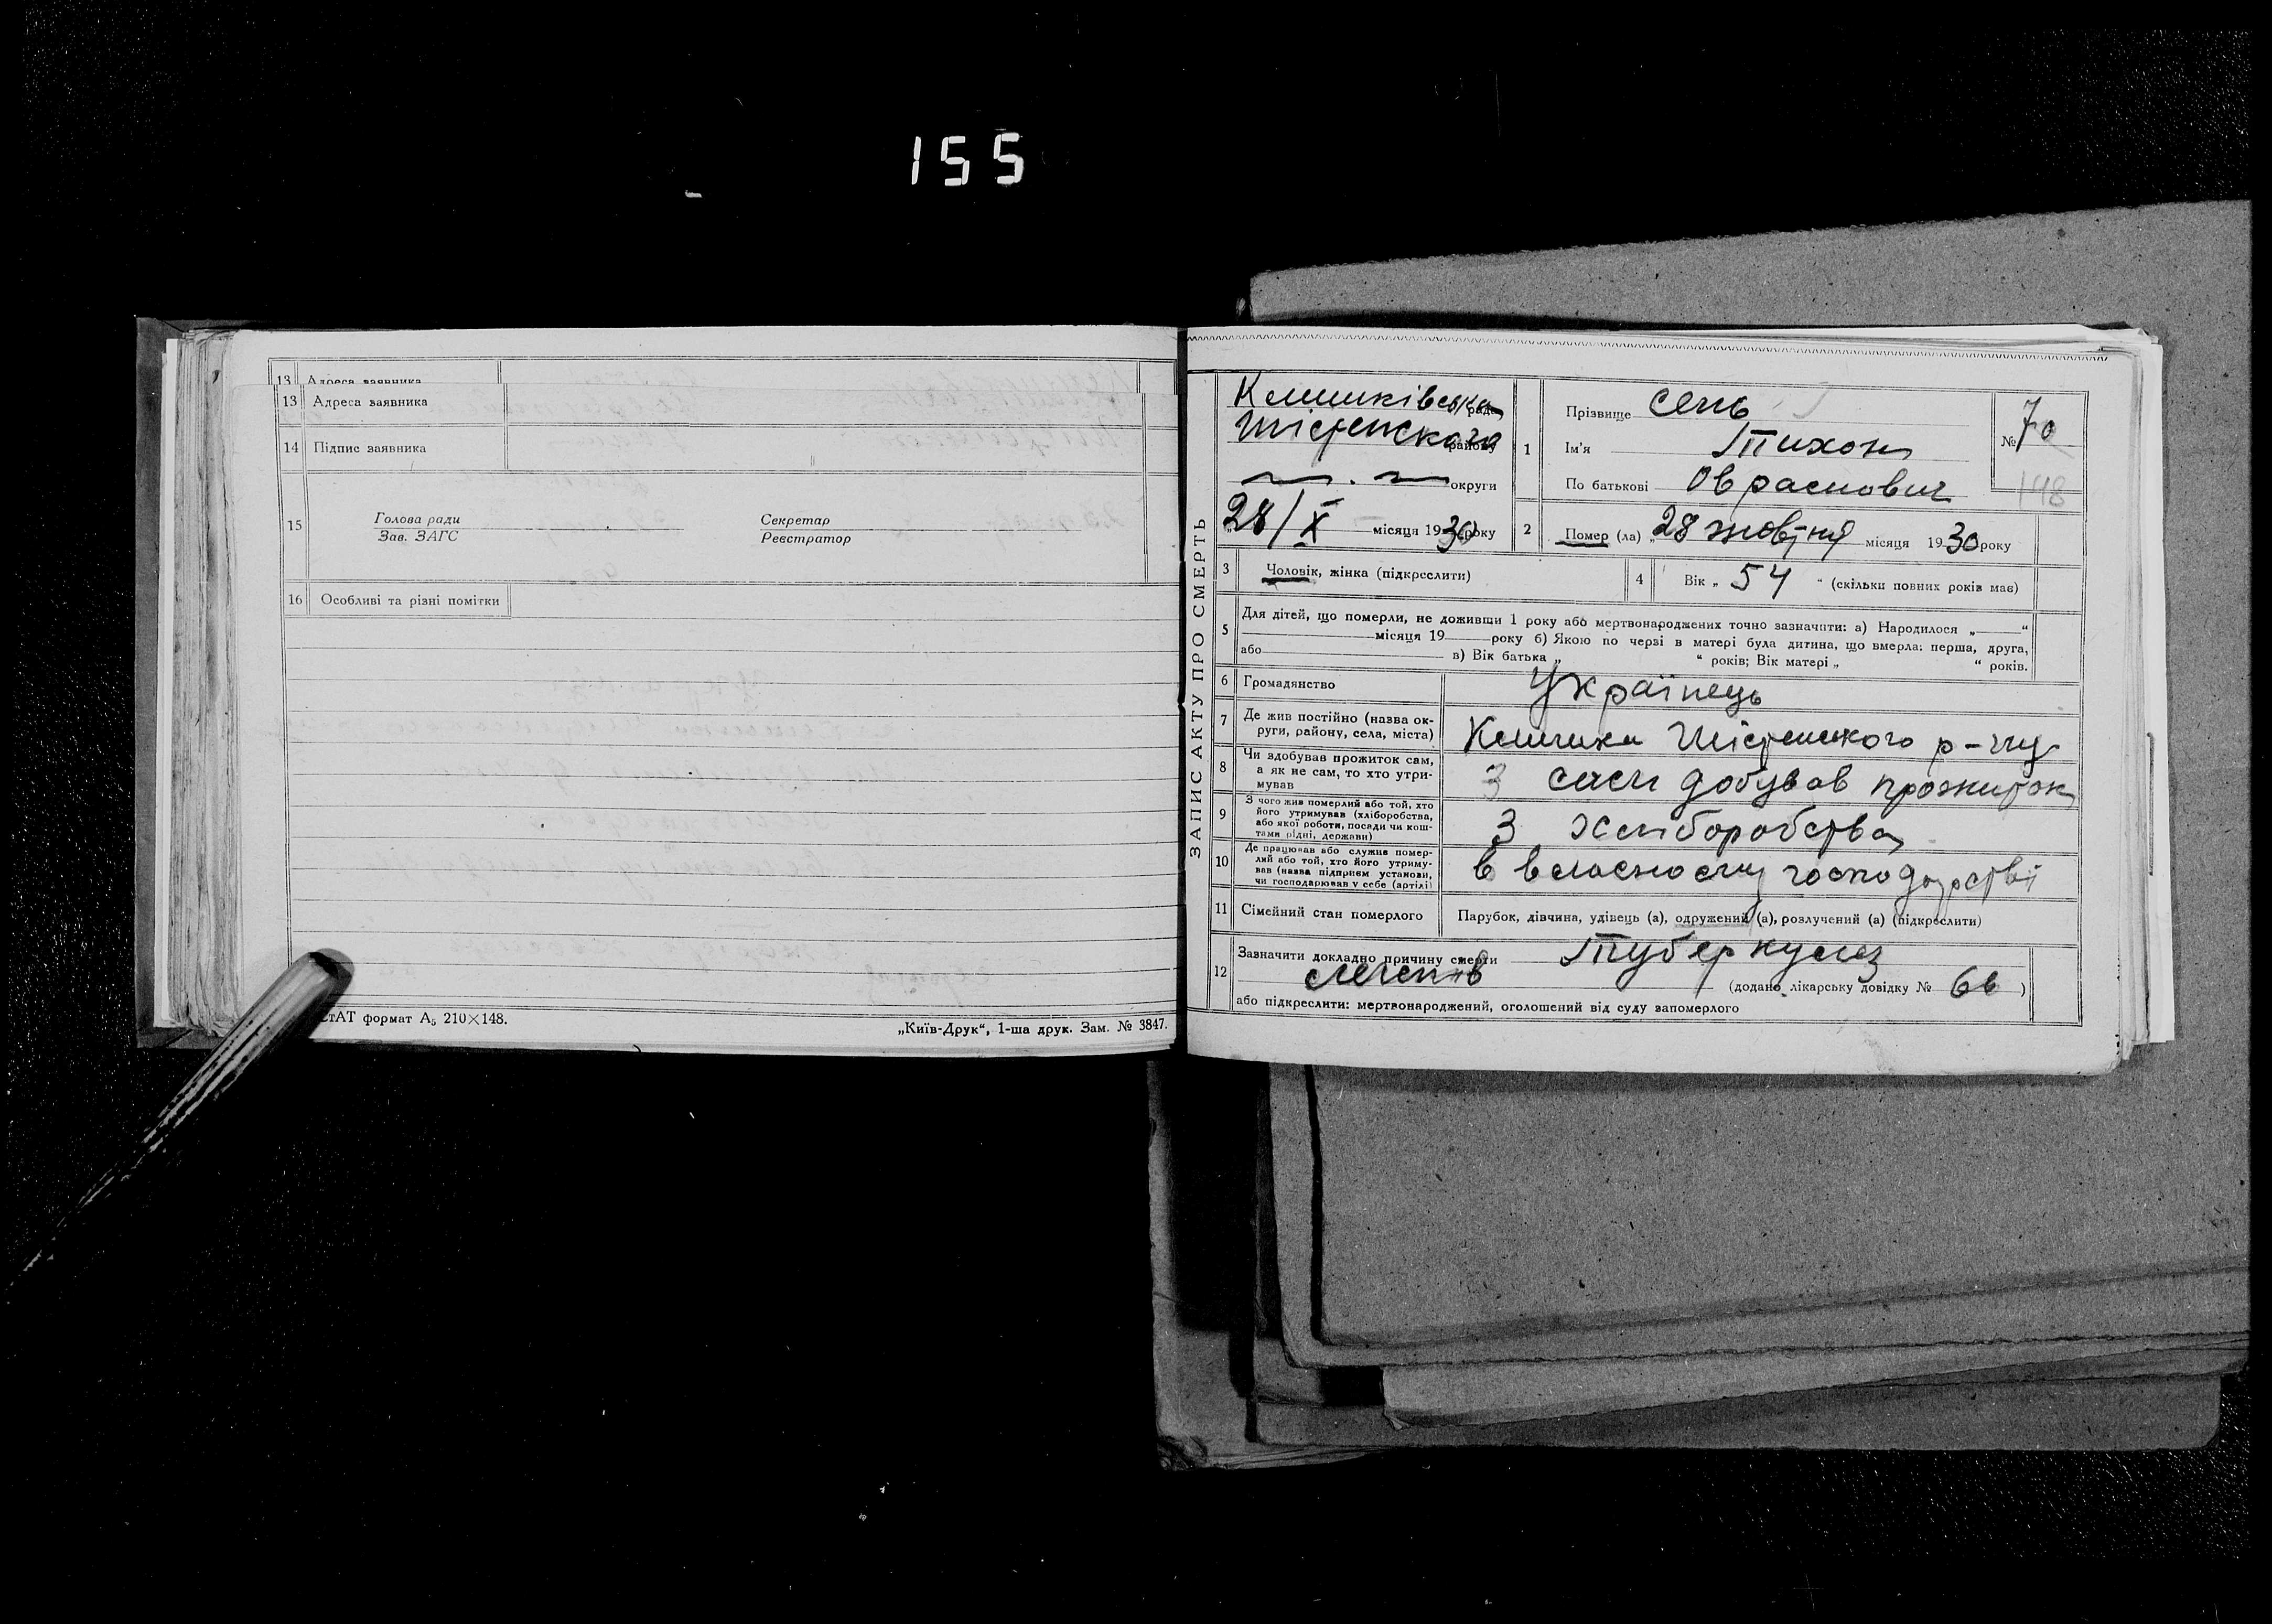 155
13 Адреса заявника
13 Адреса заявника
14 Підпис заявника
15 Голова ради Секретар
Зав. ЗАГС Реєстратор
16 Особливі та різні помітки
СтАТ формат А₅ 210×148.
„Київ-Друк“, 1-ша друк. Зам. № 3847.
ЗАПИС АКТУ ПРО СМЕРТЬ
Клишківська рада
району
округи
28/X місяця 1930 року
1 Прізвище Сень
Ім'я Тихон
По батькові
№ 70
148
2 Помер (ла) „28 жовтня місяця 1930 року
3 Чоловік, жінка (підкреслити)
4 Вік „ 54 “ (скільки повних років має)
5 Для дітей, що померли, не доживши 1 року або мертвонароджених точно зазначити: а) Народилося „ “
місяця 19 року б) Якою по черзі в матері була дитина, що вмерла: перша, друга,
або в) Вік батька „ “ років; Вік матері „ “ років.
6 Громадянство Українець
7 Де жив постійно (назва ок-
руги, району, села, міста) Клишки р-ну
8 Чи здобував прожиток сам,
а як не сам, то хто утри-
мував
сам добував прожиток
9 З чого жив померлий або той, хто
його утримував (хліборобства,
або якої роботи, посади чи кош-
тами рідні, держави)
З хліборобства
10 Де працював або служив помер-
лий або той, хто його утриму-
вав (назва підприєм установи,
чи господарював у себе (артілі)
в власному господарстві
11 Сімейний стан померлого Парубок, дівчина, удівець (а), одружений (а), розлучений (а) (підкреслити)
12 Зазначити докладно причину смерти Туберкулез
легенів (додано лікарську довідку № 66 )
або підкреслити: мертвонароджений, оголошений від суду запомерлого